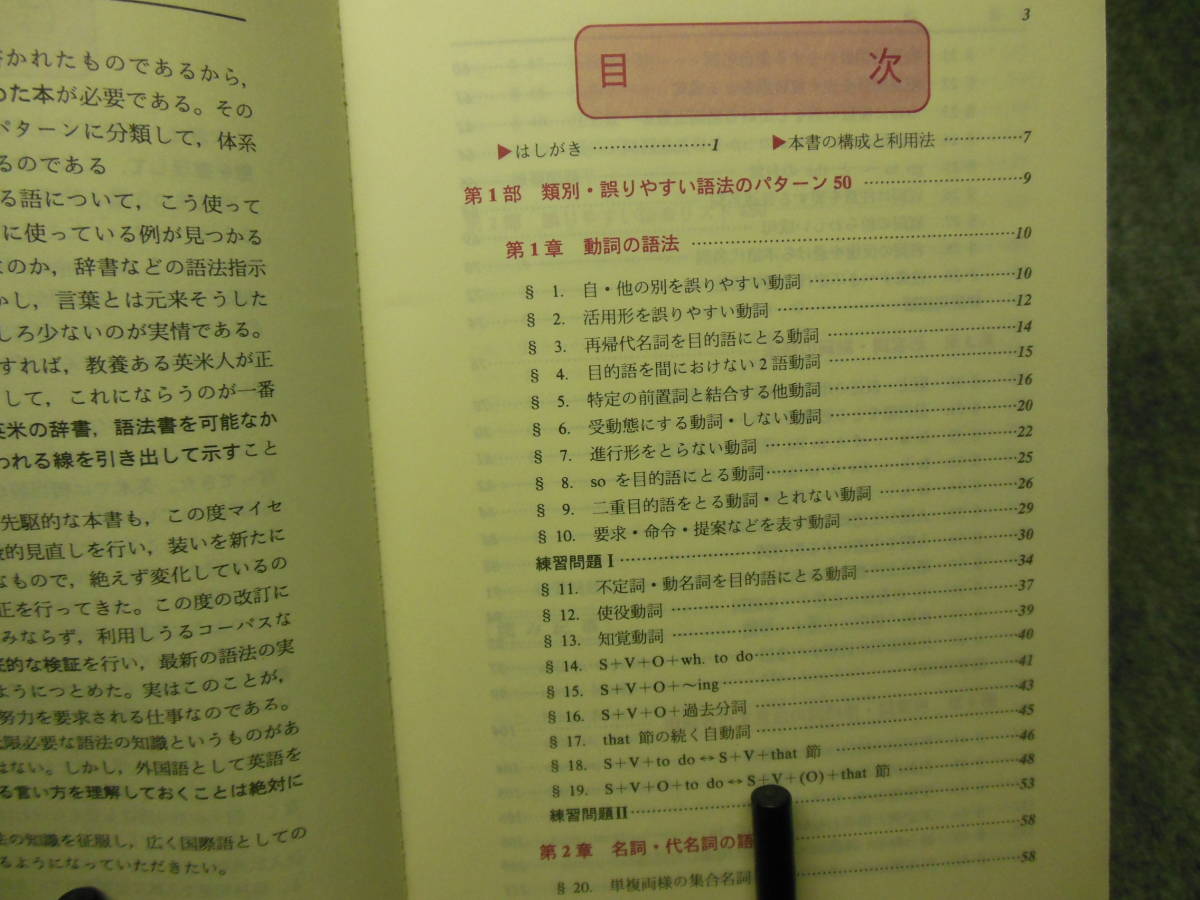 かれたものであるから，
めた本が必要である。その
パターンに分類して，体系
るのである
る語について，こう使って
に使っている例が見つかる
のか，辞書などの語法指示
かし，言葉とは元来そうした
しろ少ないのが実情である。
すれば，教養ある英米人が正
して，これにならうのが一番
英米の辞書，語法書を可能なか
われる線を引き出して示すこと
先駆的な本書も，この度マイセ
的見直しを行い，装いを新たに
なもので，絶えず変化しているの
正を行ってきた。この度の改訂に
みならず，利用しうるコーパスな
的な検証を行い，最新の語法の実
ようにつとめた。実はこのことが，
努力を要求される仕事なのである。
限必要な語法の知識というものがあ
はない。しかし，外国語として英語を
る言い方を理解しておくことは絶対に
法の知識を征服し，広く国際語としての
るようになっていただきたい。
3
目次
▶はしがき …………………1 ▶本書の構成と利用法 ……………7
第1部 類別・誤りやすい語法のパターン50 ……………………9
第1章 動詞の語法 ……………………10
§ 1. 自・他の別を誤りやすい動詞 ……………………10
§ 2. 活用形を誤りやすい動詞 ……………………12
§ 3. 再帰代名詞を目的語にとる動詞 ……………………14
§ 4. 目的語を間におけない2語動詞 ……………………15
§ 5. 特定の前置詞と結合する他動詞 ……………………16
§ 6. 受動態にする動詞・しない動詞 ……………………20
§ 7. 進行形をとらない動詞 ……………………22
§ 8. so を目的語にとる動詞 ……………………25
§ 9. 二重目的語をとる動詞・とれない動詞 ……………………26
§ 10. 要求・命令・提案などを表す動詞 ……………………29
練習問題Ⅰ ……………………30
§ 11. 不定詞・動名詞を目的語にとる動詞 ……………………34
§ 12. 使役動詞 ……………………37
§ 13. 知覚動詞 ……………………39
§ 14. S+V+O+wh. to do ……………………40
§ 15. S+V+O+〜ing ……………………41
§ 16. S+V+O+過去分詞 ……………………43
§ 17. that 節の続く自動詞 ……………………45
§ 18. S+V+to do ↔ S+V+that 節 ……………………46
§ 19. S+V+O+to do ↔ S+V+(O)+that 節 ……………………48
練習問題Ⅱ ……………………53
第2章 名詞・代名詞の語 ……………………58
§ 20. 単複両様の集合名詞 ……………………58